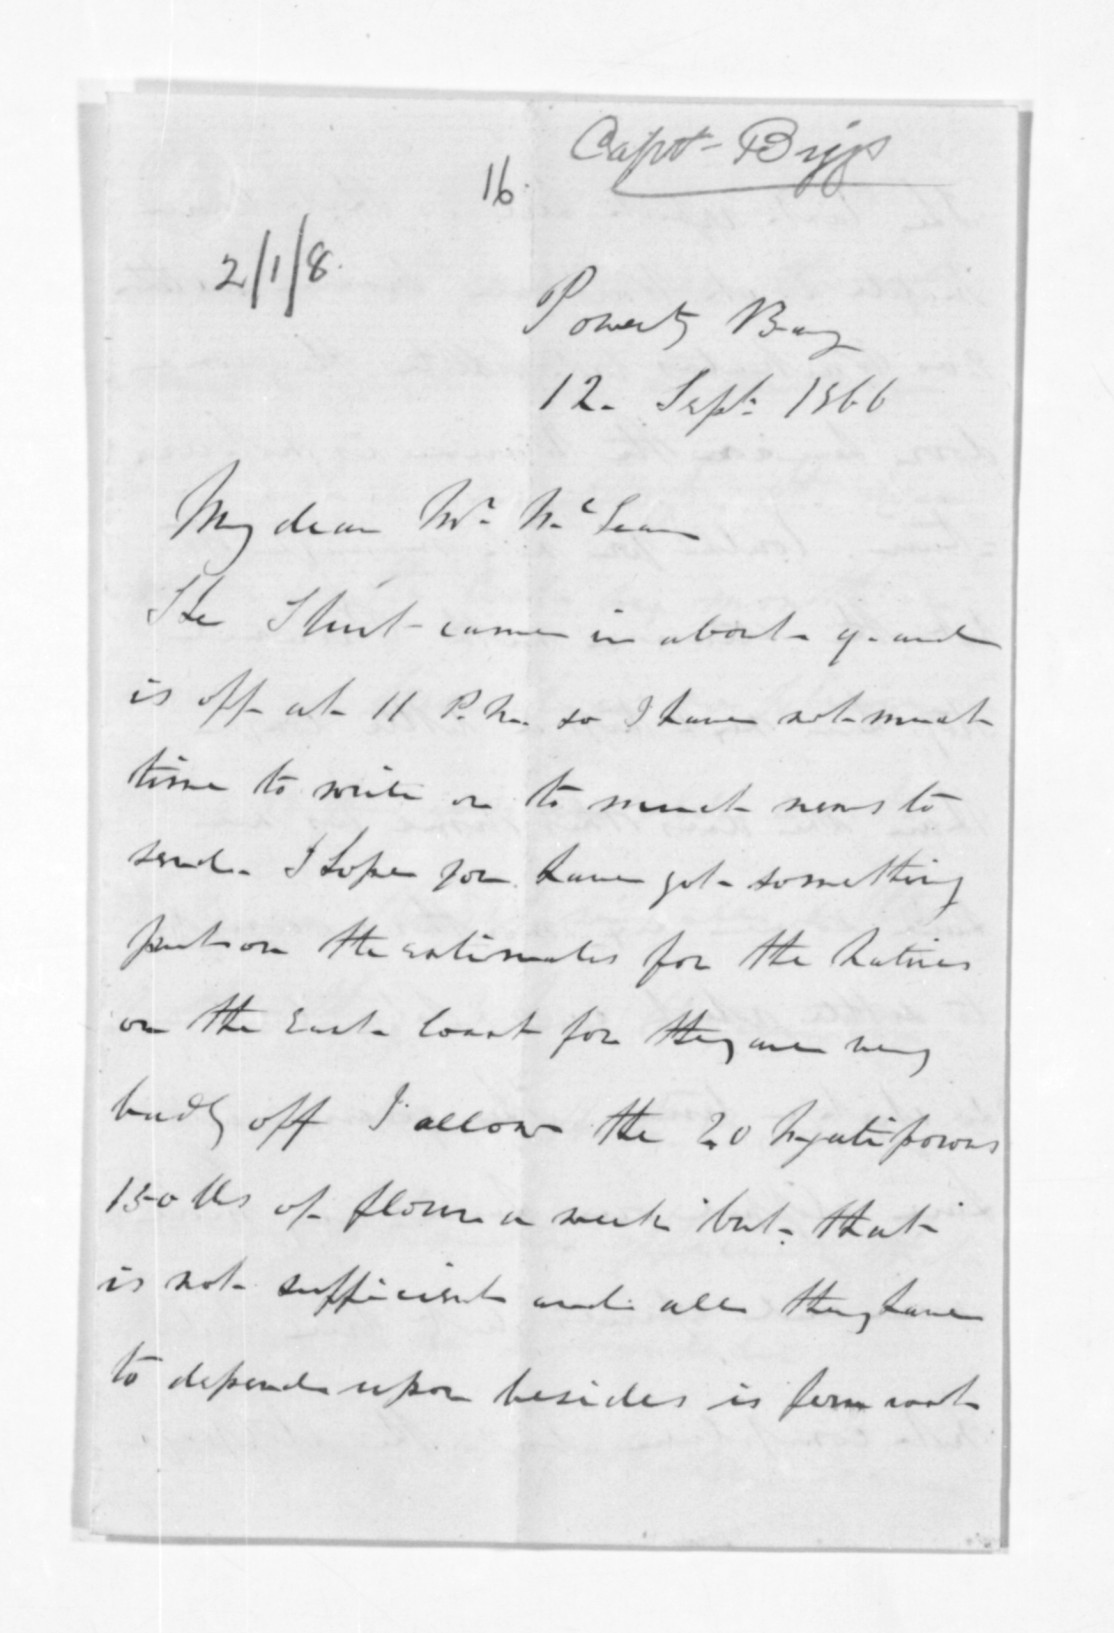 Capt Biggs
16.
2/1/8.
Poverty Bay
12. Sept. 1866
My dear Mr. McLean
The Sturt came in about 9 and
is off at 11 P.M. so I have not much
time to write or to much news to
send. I hope you have got something
put on the estimates for the Natives
on the East Coast for they are very
badly off I allow the 20 Ngatiporous
150 lbs of flour a week but that
is not sufficient and all they have
to depend upon besides is fern root